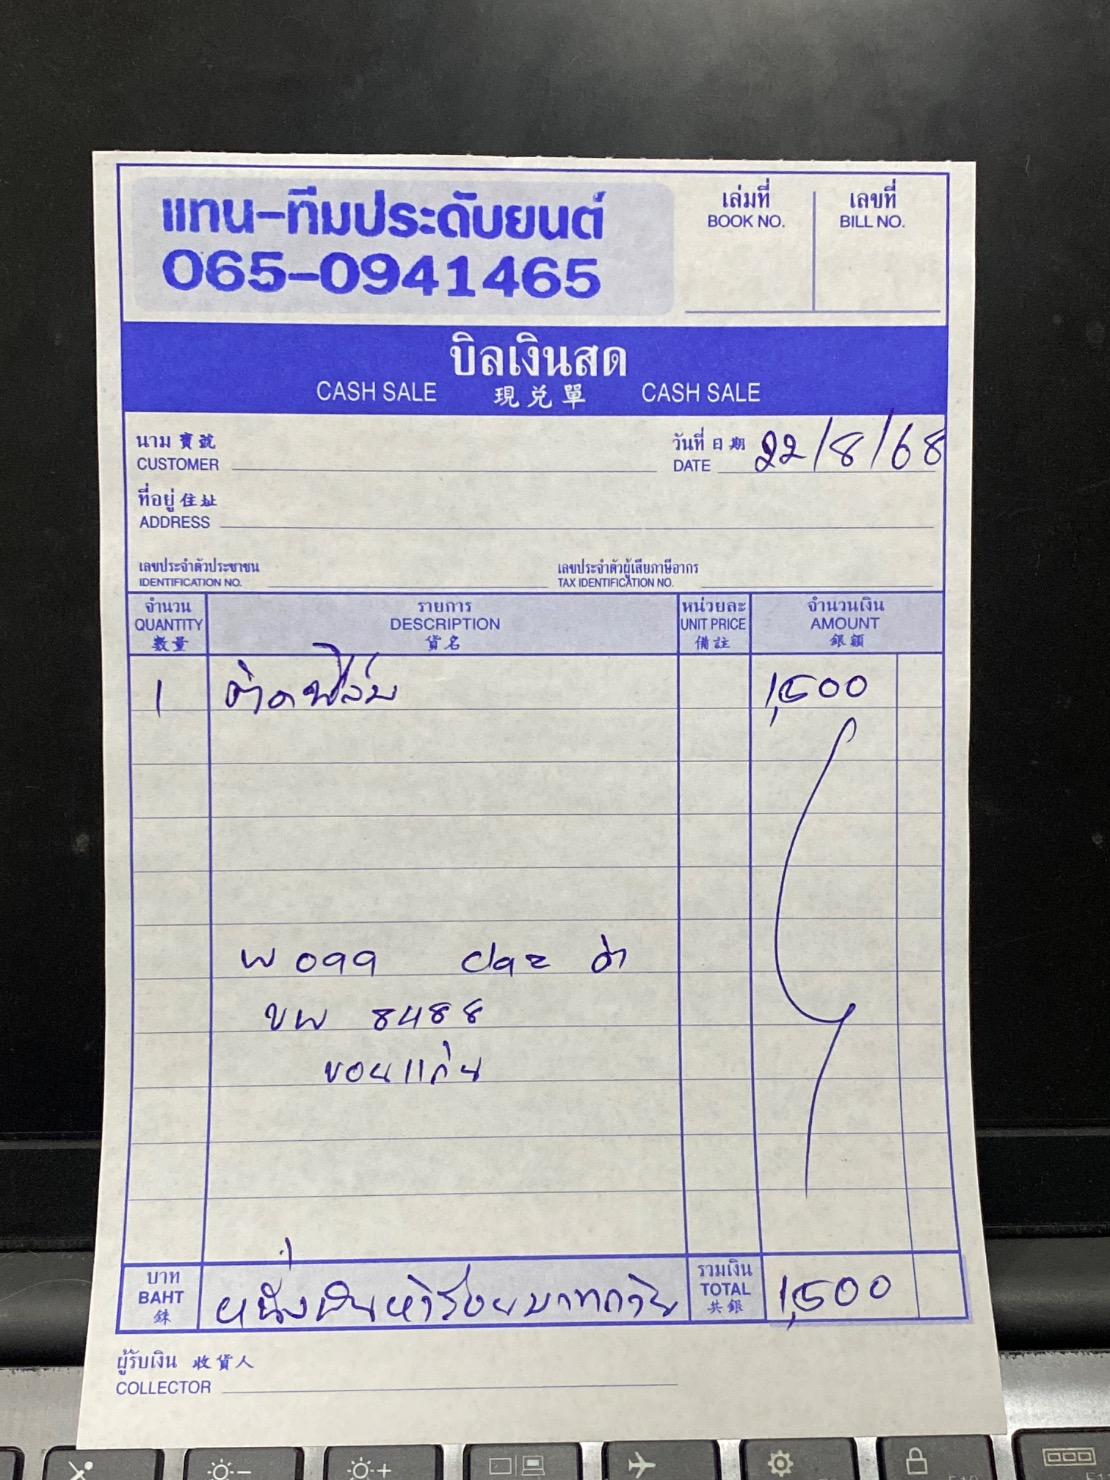 แทน-ทีมประดับยนต์
065-0941465
เล่มที่
BOOK NO.
เลขที่
BILL NO.
บิลเงินสด
CASH SALE 現兌單 CASH SALE
นาม 寶號
CUSTOMER
วันที่ 日期
DATE 22/8/68
ที่อยู่ 住址
ADDRESS
เลขประจำตัวประชาชน
IDENTIFICATION NO.
เลขประจำตัวผู้เสียภาษีอากร
TAX IDENTIFICATION NO.
จำนวน
QUANTITY
數量
รายการ
DESCRIPTION
貨名
หน่วยละ
UNIT PRICE
備註
จำนวนเงิน
AMOUNT
銀額
1 ติดฟิล์ม 1,500
8488
ขอนแก่น
บาท
BAHT
銖
หนึ่งพันห้าร้อยบาทถ้วน
รวมเงิน
TOTAL
共銀
1,500
ผู้รับเงิน 收貨人
COLLECTOR